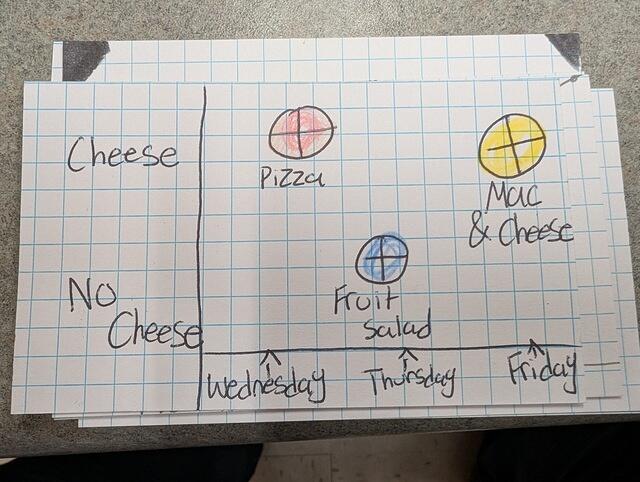 Cheese
Pizza
Mac
& Cheese
No
Cheese
Fruit
Salad
Wednesday
Thursday
Friday